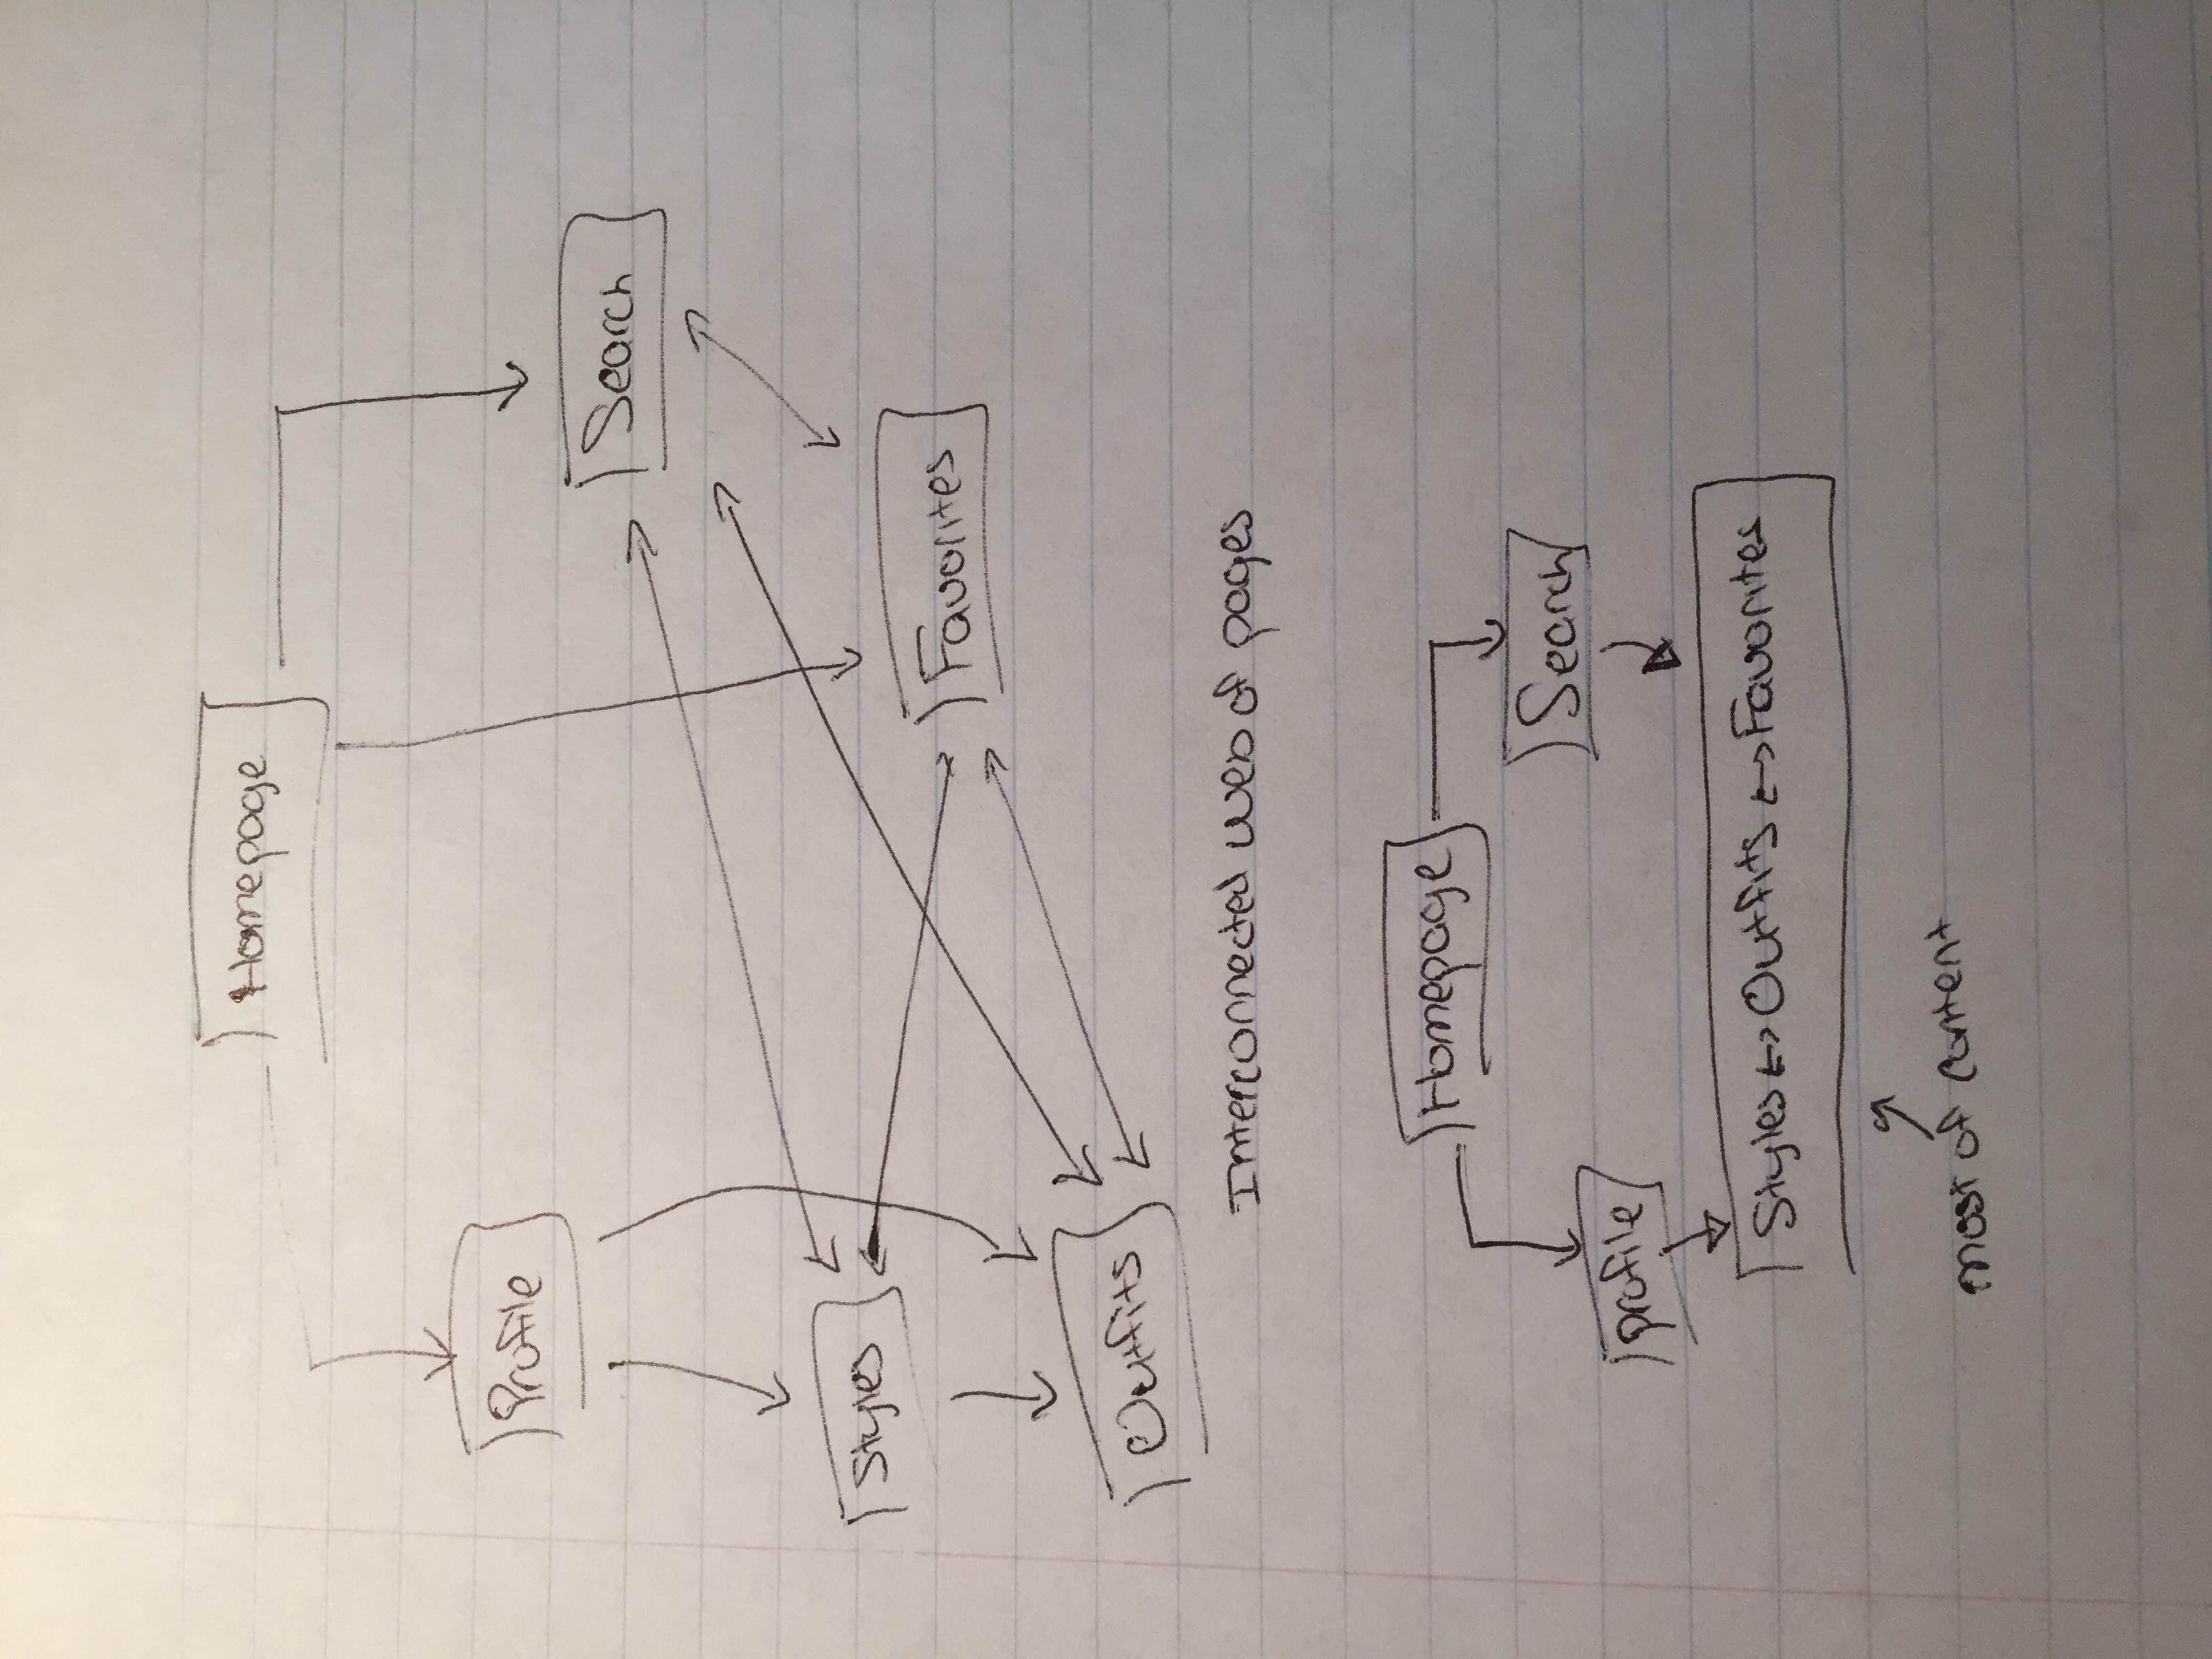 Homepage
Profile
Search
Styles
Favorites
Outfits
Interconnected web of pages
Homepage
Search
profile
Styles ↔ Outfits ↔ Favorites
most of content